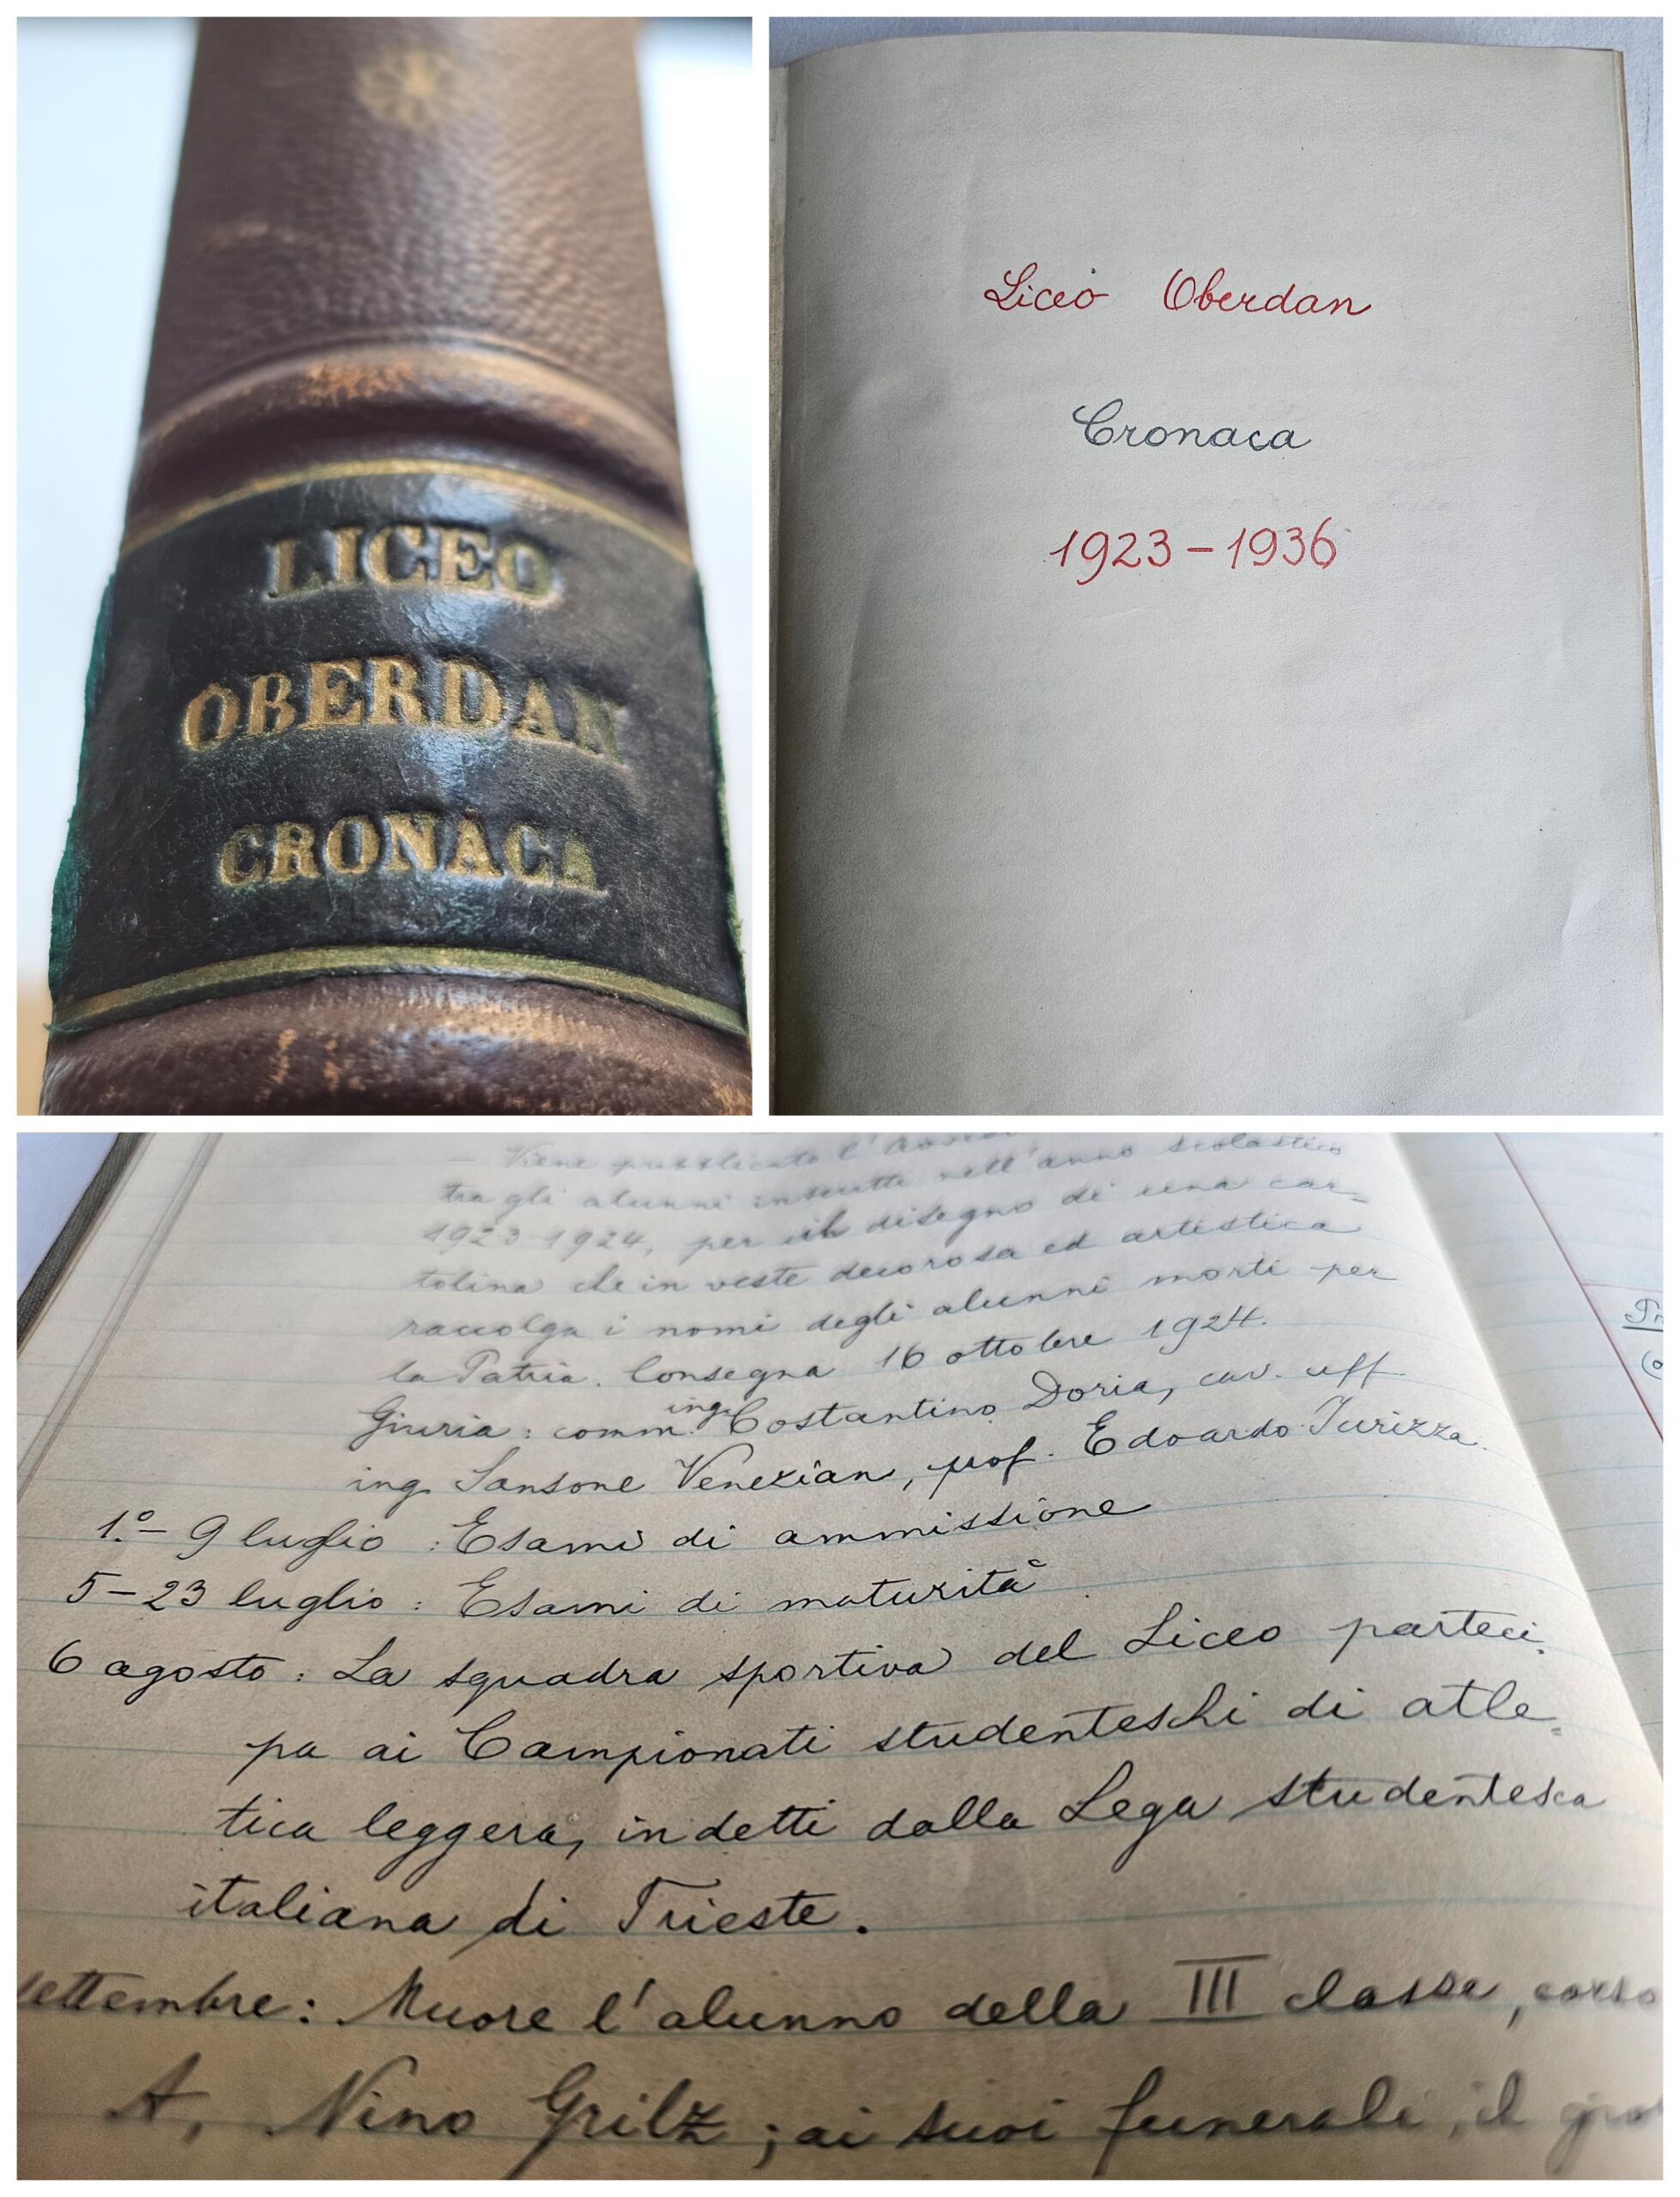 LICEO
OBERDAN
CRONACA
Liceo Oberdan
Cronaca
1923-1936
- Viene pubblicato l'
tra gli alunni inscritti nell'anno scolastico
1923-1924, per il disegno di una car-
tolina che in veste decorosa ed artistica
raccolga i nomi degli alunni morti per
la Patria. Consegna 16 ottobre 1924.
Giuria: comm. ing. Costantino Doria, cav. uff.
ing. Sansone Venezian, prof. Edoardo Iurizza.
1º- 9 luglio : Esami di ammissione
5-23 luglio : Esami di maturità
6 agosto : La squadra sportiva del Liceo parteci-
pa ai Campionati studenteschi di atle-
tica leggera, indetti dalla Lega studentesca
italiana di Trieste.
settembre: Muore l'alunno della III classe, corso
A, Nino Grilz ; ai suoi funerali, il